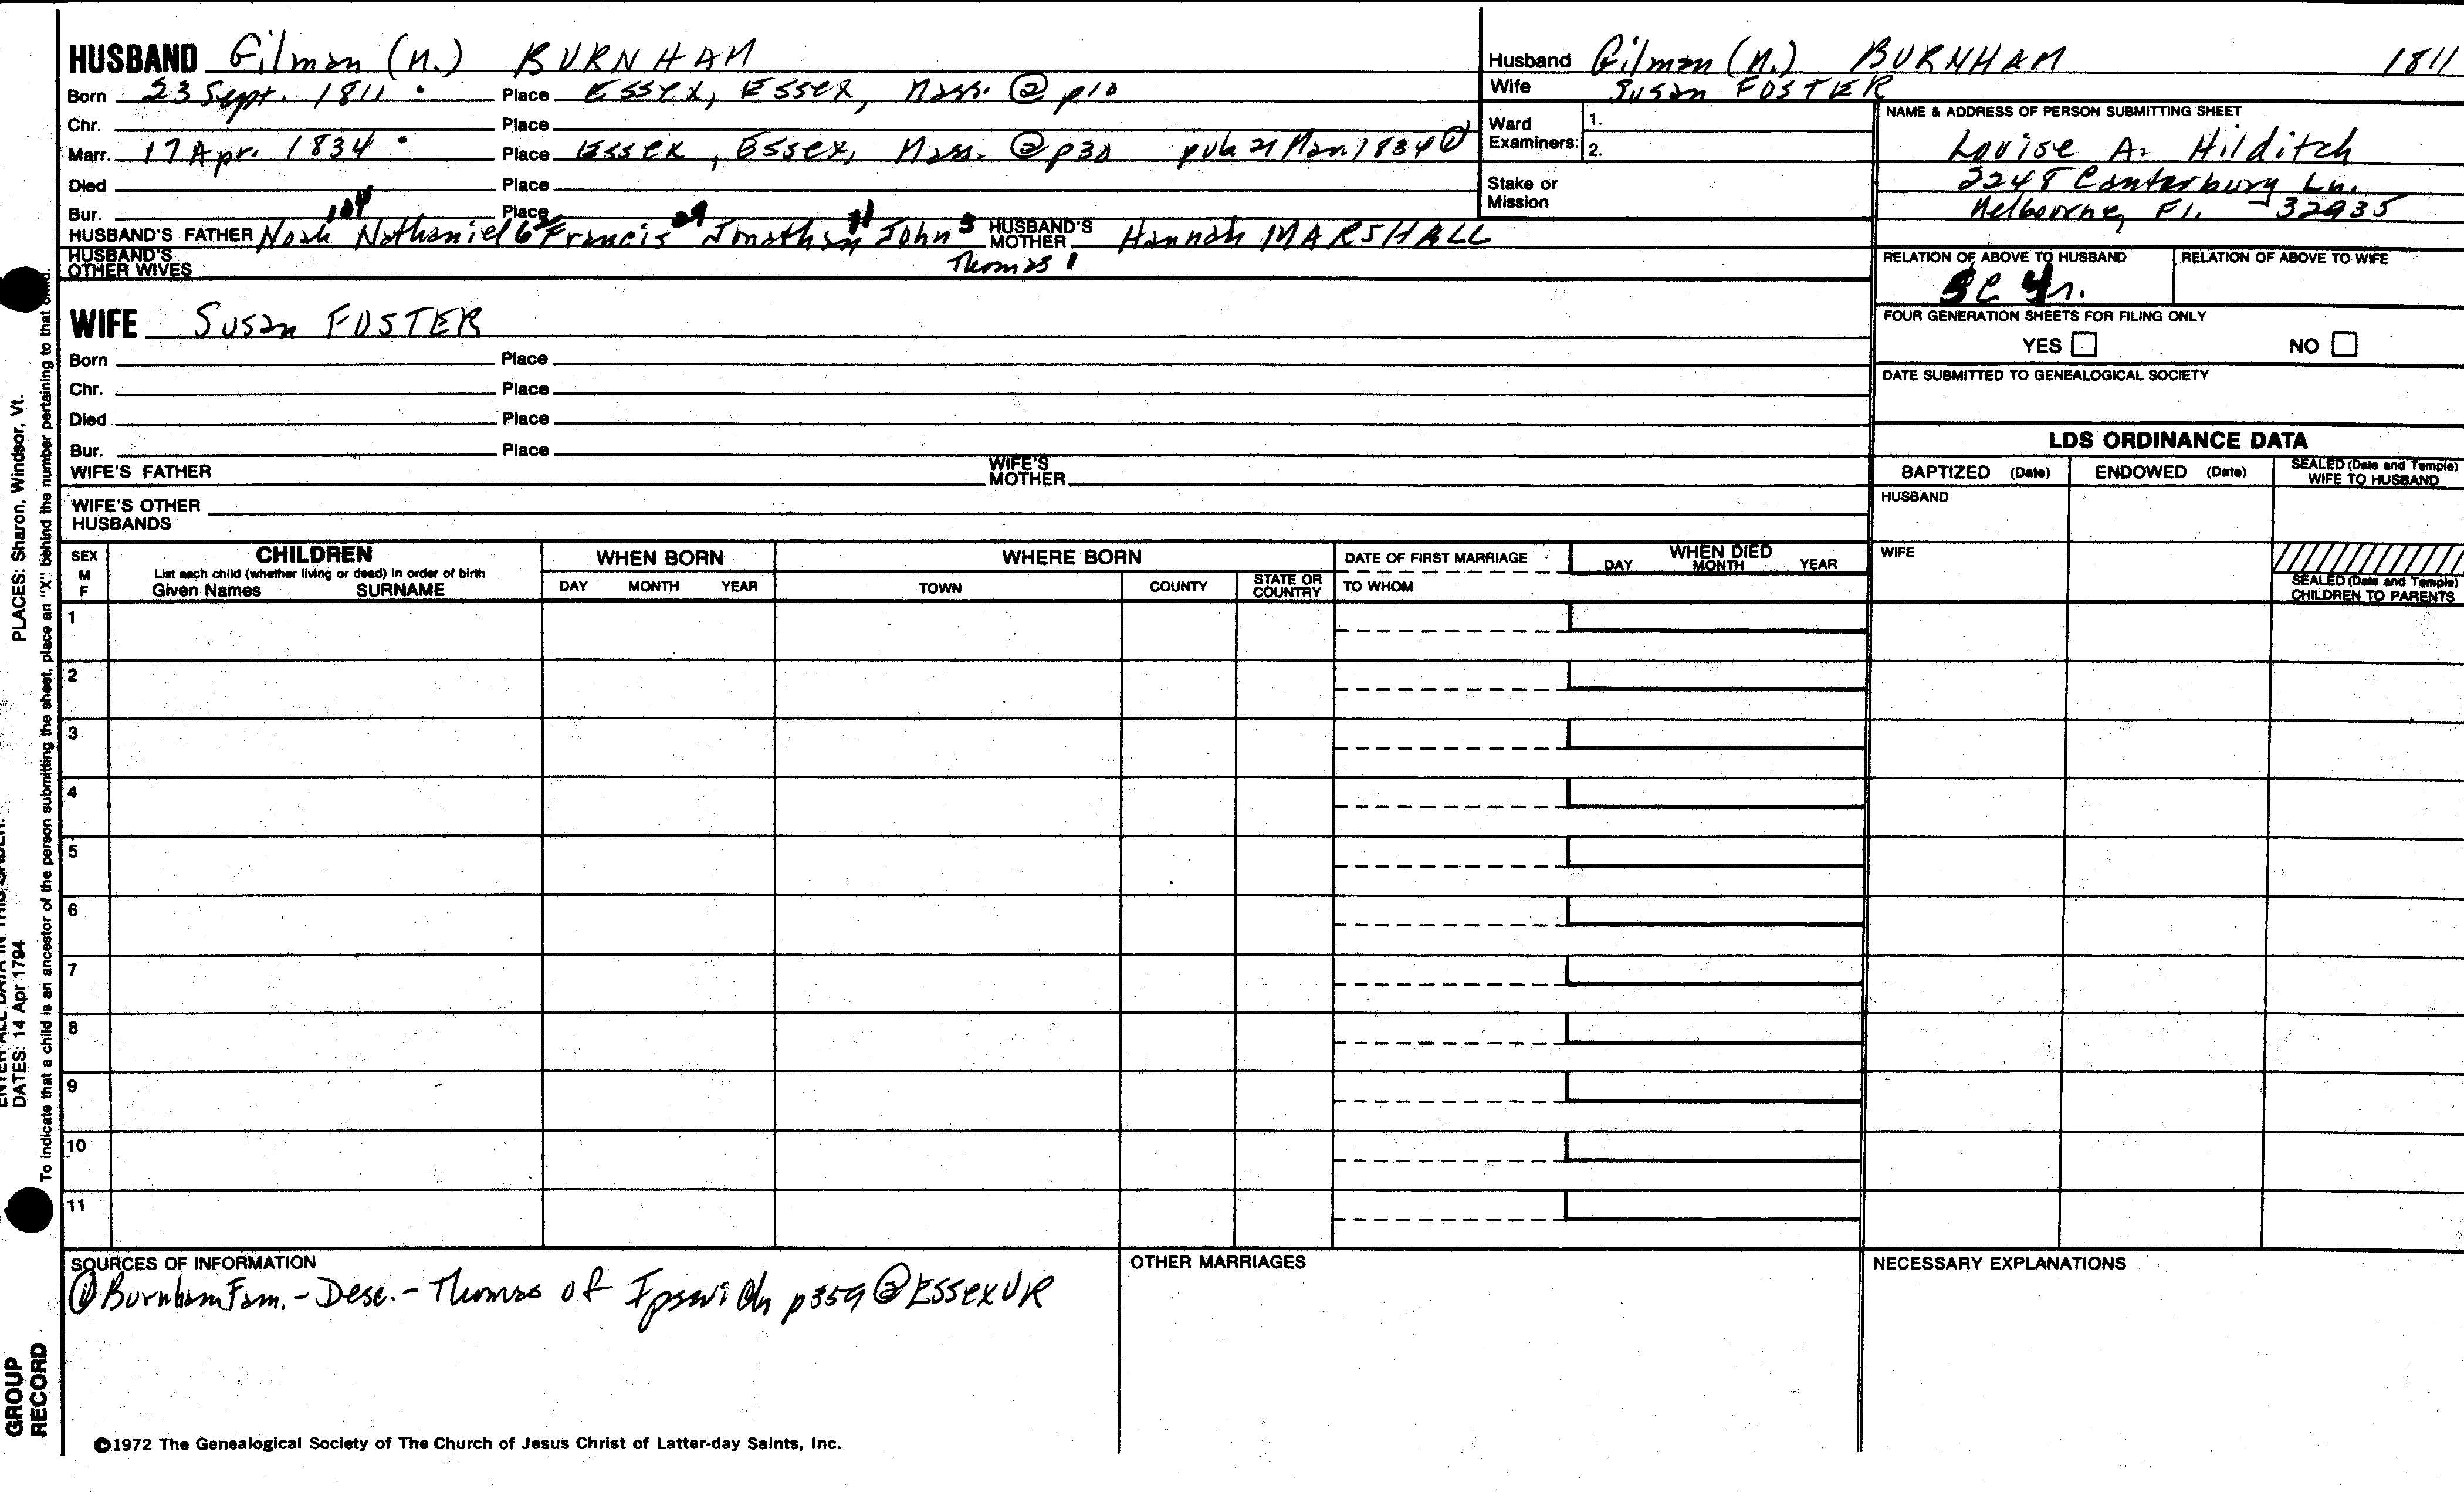 HUSBAND Gilman (M.) BURNHAM
Born 23 Sept. 1811 Place Essex, Essex, Mass. ② p10
Chr. Place
Marr. 17 Apr. 1834 Place Essex, Essex, Mass. ② p30 pub 21 Mar 1834 ①
Died Place
Bur. Place
HUSBAND'S FATHER Noah Nathaniel 6 Francis Jonathan John 3 HUSBAND'S MOTHER Hannah MARSHALL
HUSBAND'S OTHER WIVES Thomas 1
WIFE Susan FOSTER
Born Place
Chr. Place
Died Place
Bur. Place
WIFE'S FATHER WIFE'S MOTHER
WIFE'S OTHER HUSBANDS
Husband Gilman (M.) BURNHAM 1811
Wife Susan FOSTER
Ward Examiners: 1.
2.
Stake or Mission
NAME & ADDRESS OF PERSON SUBMITTING SHEET
Louise A. Hilditch
2248 Canterbury Ln.
Melbourne, Fl. 32935
RELATION OF ABOVE TO HUSBAND RELATION OF ABOVE TO WIFE
FOUR GENERATION SHEETS FOR FILING ONLY
YES NO
DATE SUBMITTED TO GENEALOGICAL SOCIETY
LDS ORDINANCE DATA
BAPTIZED (Date) ENDOWED (Date) SEALED (Date and Temple) WIFE TO HUSBAND
HUSBAND
WIFE
SEALED (Date and Temple) CHILDREN TO PARENTS
SEX M F
CHILDREN
List each child (whether living or dead) in order of birth
Given Names SURNAME
WHEN BORN
DAY MONTH YEAR
WHERE BORN
TOWN COUNTY STATE OR COUNTRY
DATE OF FIRST MARRIAGE
TO WHOM
WHEN DIED
DAY MONTH YEAR
1
2
3
4
5
6
7
8
9
10
11
SOURCES OF INFORMATION
① Burnham Fam. - Desc. - Thomas of Ipswich p359 ② Essex VR
OTHER MARRIAGES
NECESSARY EXPLANATIONS
©1972 The Genealogical Society of The Church of Jesus Christ of Latter-day Saints, Inc.
PLACES: Sharon, Windsor, Vt.
DATES: 14 Apr 1794
To indicate that a child is an ancestor of the person submitting the sheet, place an "X" behind the number pertaining to that
GROUP
RECORD